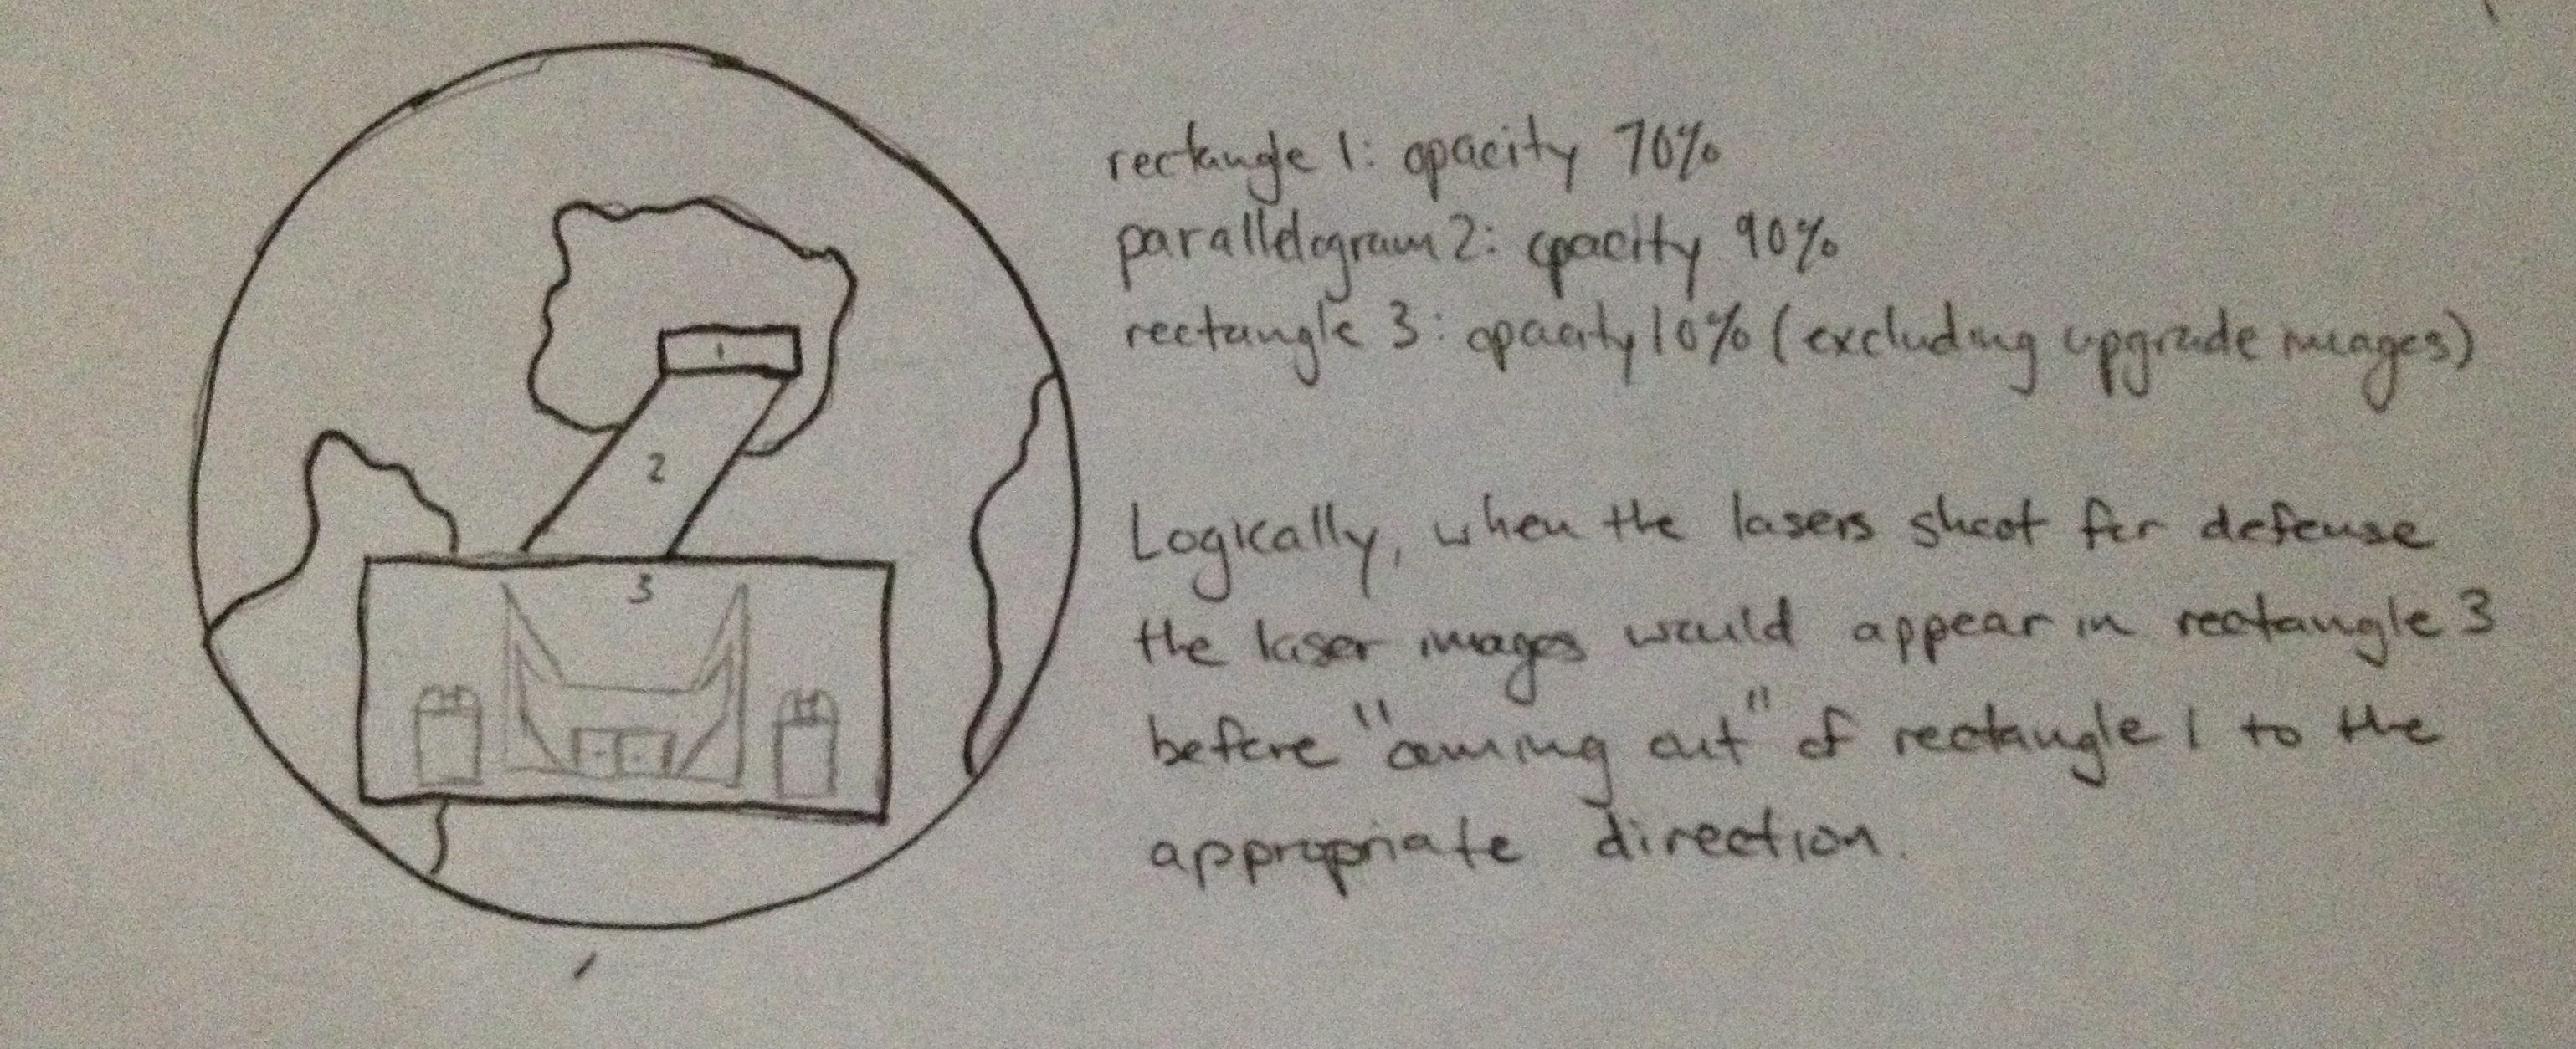 rectangle 1: opacity 70%
parallelogram 2: opacity 90%
rectangle 3: opacity 10% (excluding upgrade images)
Logically, when the lasers shoot for defense
the laser images would appear in rectangle 3
before "coming out" of rectangle 1 to the
appropriate direction.
1
2
3